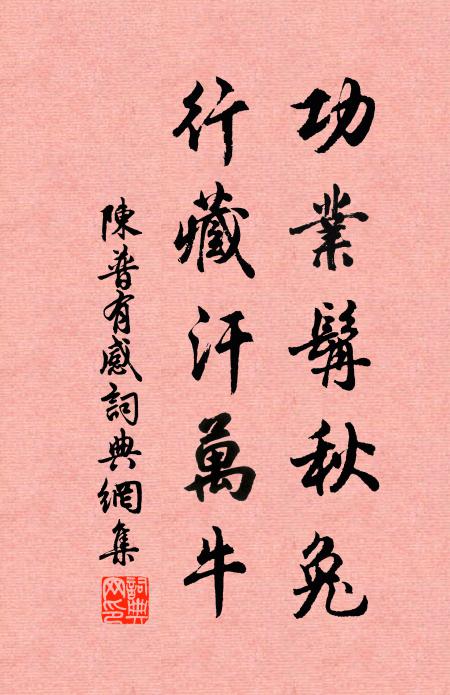 功業秋兔
行藏汗萬牛
陳普有感詞典網集
詞典网印